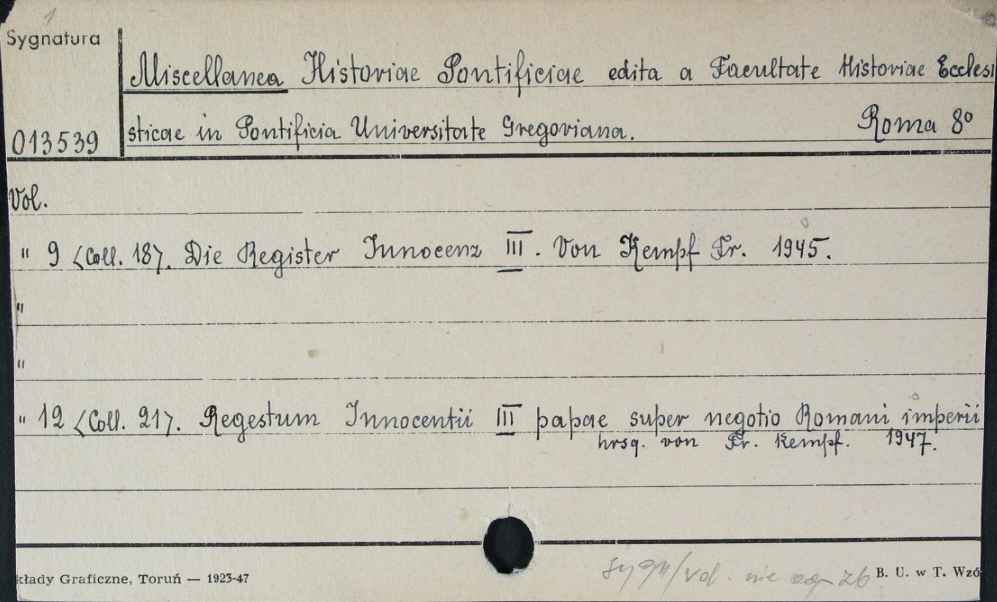 1
Sygnatura
Miscellanea Historiae Pontificiae edita a Facultate Historiae Ecclesi
013539 sticae in Pontificia Universitate Gregoriana. Roma 8º
Vol.
" 9 <Coll. 18>. Die Register Innocenz III. Von Kempf Fr. 1945.
"
"
" 12 <Coll. 21>. Regestum Innocentii III papae super negotio Romani imperii
hrsg. von Fr. Kempf. 1947.
kłady Graficzne, Toruń — 1923-47
/vol. nie B. U. w T. Wzó